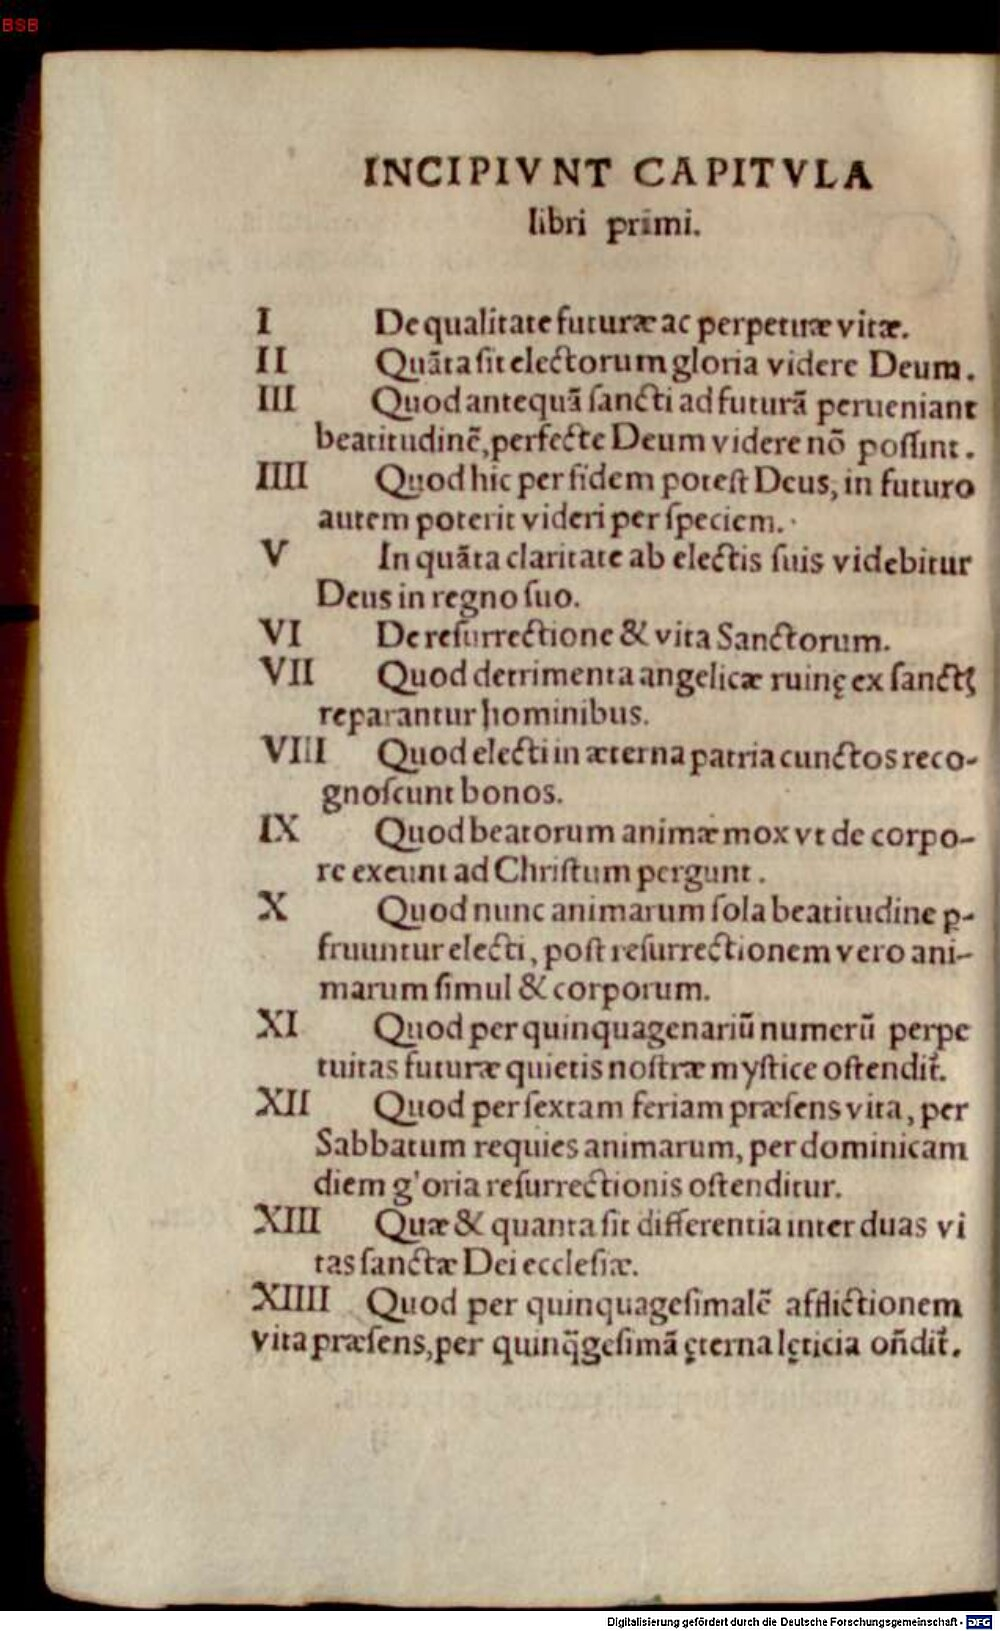 BSB
INCIPIVNT CAPITVLA
libri primi.
I De qualitate futuræ ac perpetuæ vitæ.
II Quãta sit electorum gloria videre Deum.
III Quod antequã sancti ad futurã perueniant
beatitudinẽ, perfecte Deum videre nõ possint.
IIII Quod hic per fidem potest Deus, in futuro
autem poterit videri per speciem.
V In quãta claritate ab electis suis videbitur
Deus in regno suo.
VI De resurrectione & vita Sanctorum.
VII Quod detrimenta angelicæ ruinę ex sanctꝭ
reparantur hominibus.
VIII Quod electi in æterna patria cunctos reco-
gnoscunt bonos.
IX Quod beatorum animæ mox vt de corpo-
re exeunt ad Christum pergunt.
X Quod nunc animarum sola beatitudine ꝑ-
fruuntur electi, post resurrectionem vero ani-
marum simul & corporum.
XI Quod per quinquagenariũ numerũ perpe
tuitas futuræ quietis nostræ mystice ostendit̃.
XII Quod per sextam feriam præsens vita, per
Sabbatum requies animarum, per dominicam
diem g'oria resurrectionis ostenditur.
XIII Quæ & quanta sit differentia inter duas vi
tas sanctæ Dei ecclesiæ.
XIIII Quod per quinquagesimalẽ afflictionem
vita præsens, per quinq̃gesimã ęterna lęticia oñdit̃.
Digitalisierung gefördert durch die Deutsche Forschungsgemeinschaft - DFG